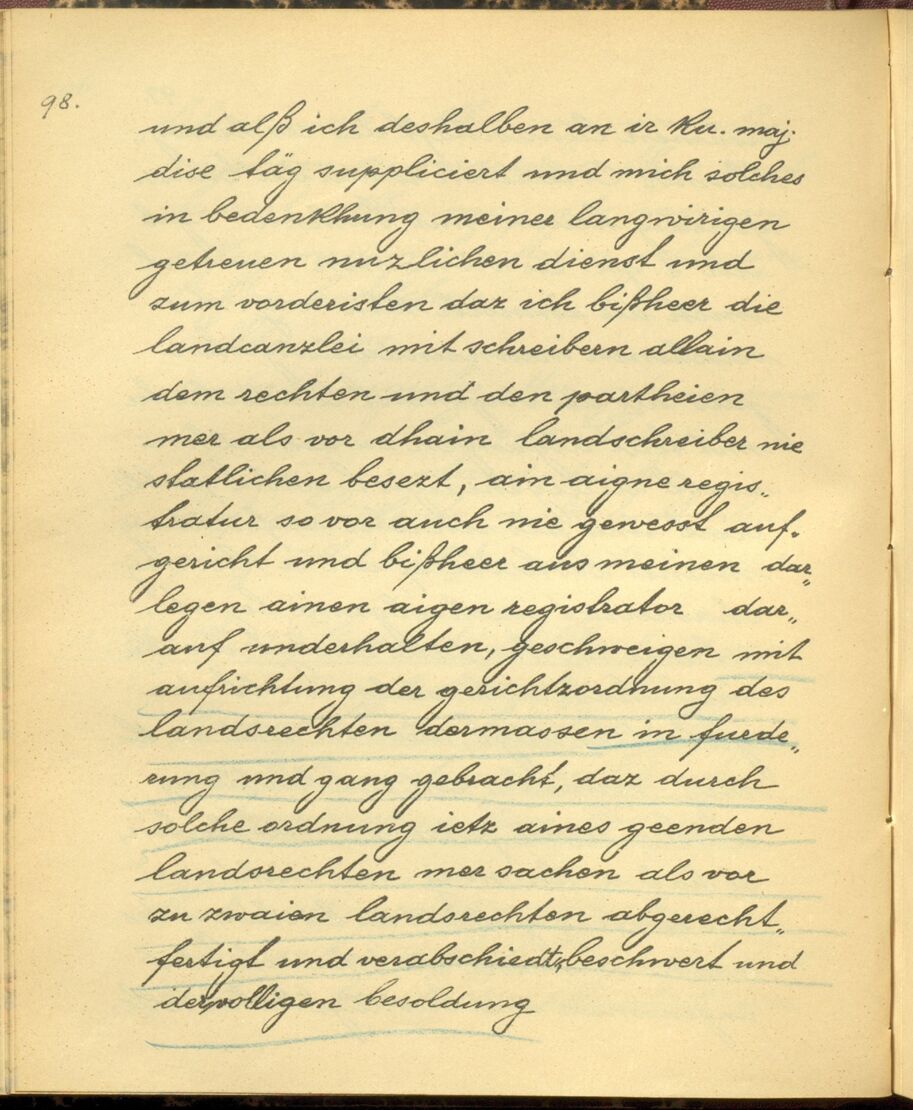 98.
und alß ich deshalben an ir Ku. maj.
dise täg suppliciert und mich solches
in bedenkhung meiner langwirigen
getreuen nuzlichen dienst und
zum vorderisten daz ich bißheer die
landcanzlei mit schreibern allain
dem rechten und den partheien
mer als vor dhain landschreiber nie
statlichen besezt, ain aigne regis„
tratur so vor auch nie gewesst auf„
gericht und bißheer aus meinen dar„
legen ainen aigen registrator dar„
auf underhalten, geschweigen mit
aufrichtung der gerichtzordnung des
landsrechten dermassen in furde„
rung und gang gebracht, daz durch
solche ordnung ietz aines geenden
landsrechten mer sachen als vor
zu zwaien landsrechten abgerecht„
fertigt und verabschiedt, beschwert und
der volligen besoldung